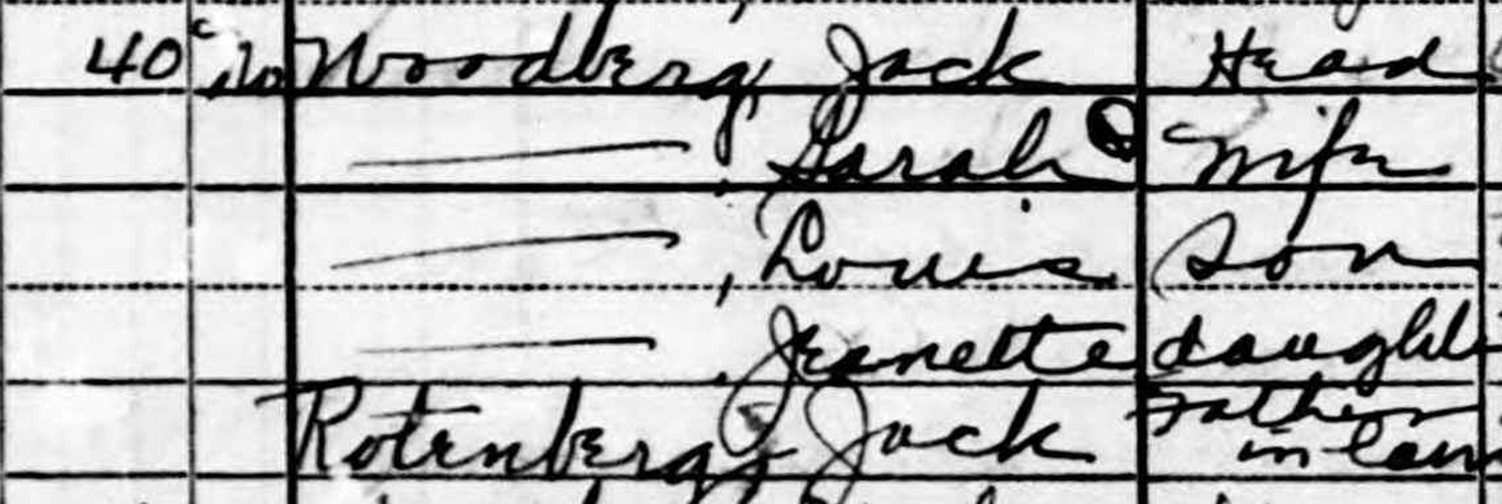 40 No Woodberg, Jack Head
——, Sarah Wife
——, Louis Son
——, Jeanette daught
Rotenberg, Jack Father in law